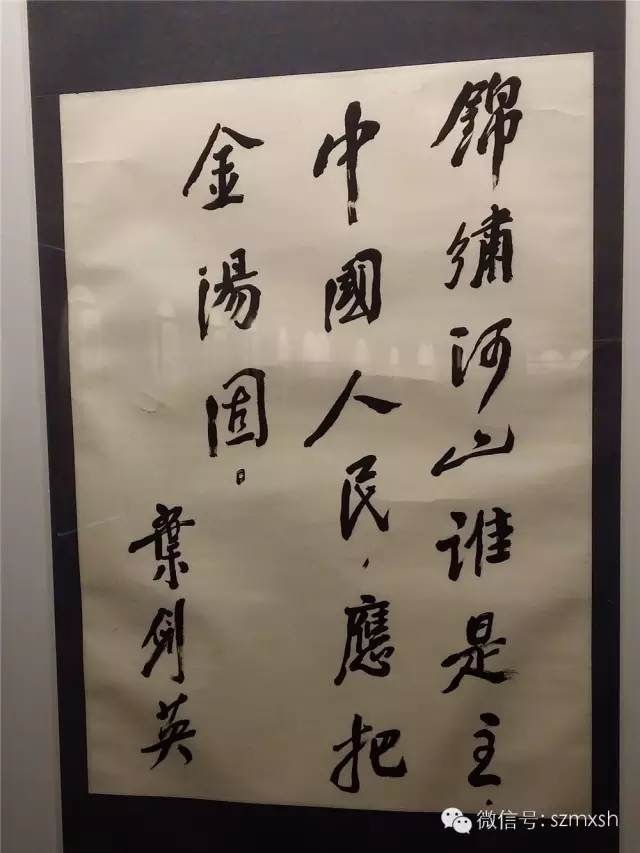 錦繡河山誰是主.
中國人民，應把
金湯固。
葉劍英
微信号: szmxsh